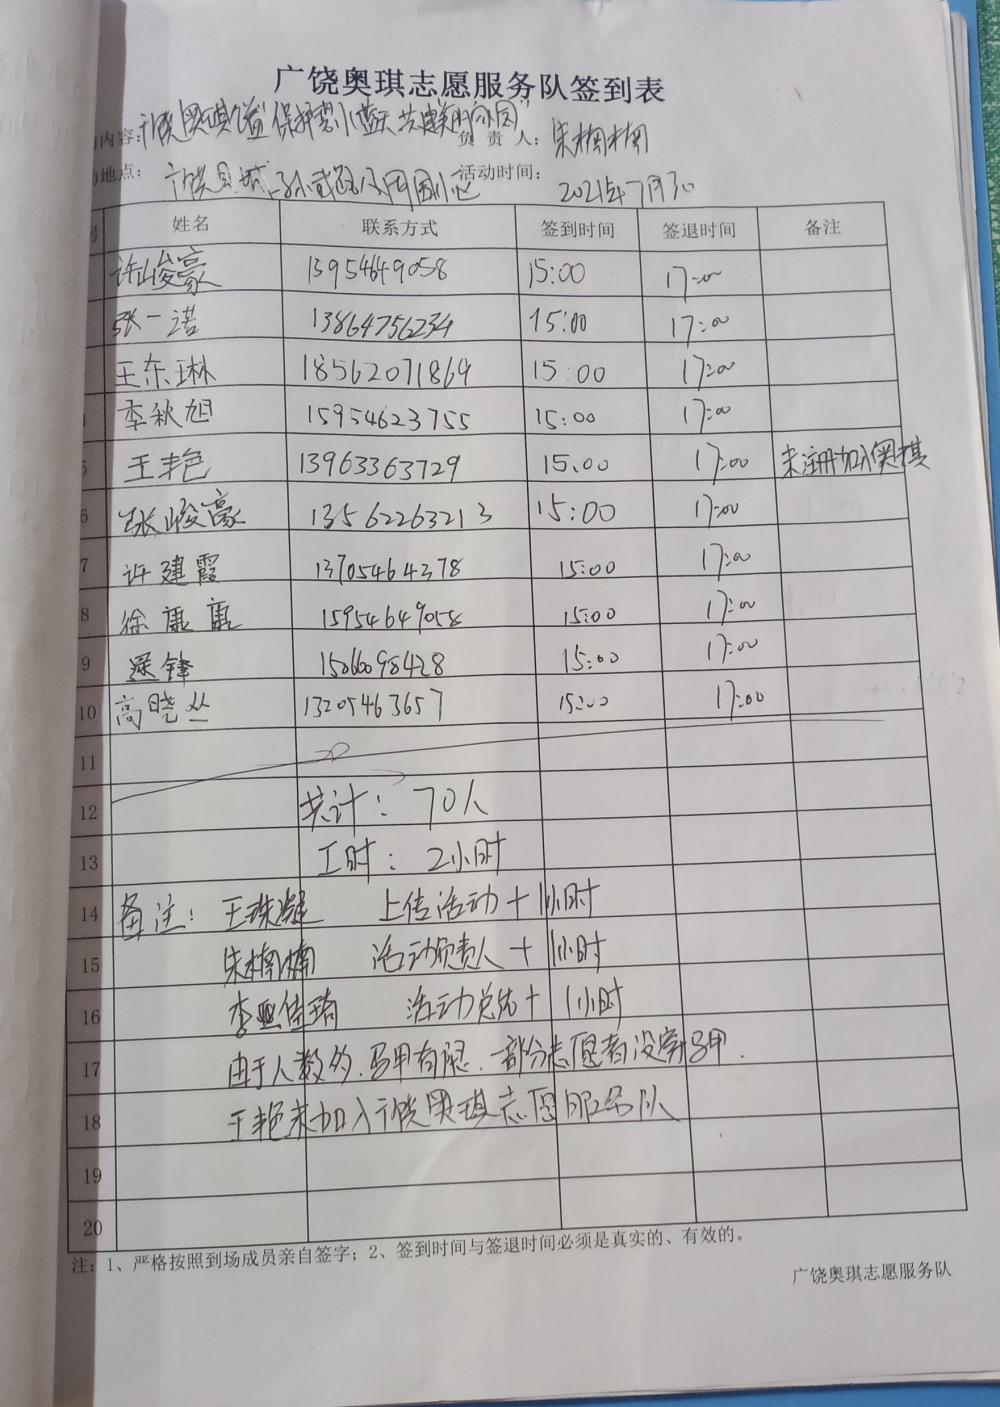 广饶奥琪志愿服务队签到表
内容：广饶奥琪公益"保护碧水蓝天 共建美好家园" 负责人：朱楠楠
地点：广饶县城 孙武路 小区 活动时间：2021年7月30
号 姓名 联系方式 签到时间 签退时间 备注
许峻豪 13954649058 15:00 17:00
张一诺 13864756234 15:00 17:00
王东琳 18562071869 15:00 17:00
李秋旭 15954623755 15:00 17:00
5 王丰色 13963363729 15:00 17:00 未注册加入奥琪
6 张峻豪 13562263213 15:00 17:00
7 许建霞 13705464378 15:00 17:00
8 徐康康 15954649058 15:00 17:00
9 锋 15066098428 15:00 17:00
10 高晓丛 13205463657 15:00 17:00
11
12 共计：70人
13 工时：2小时
14 备注：王珠凝 上传活动+1小时
15 朱楠楠 活动负责人+1小时
16 李佳琦 活动总结+1小时
17 由于人数多.马甲有限.一部分志愿者没穿马甲.
18 王艳未加入广饶奥琪志愿服务队
19
20
注：1、严格按照到场成员亲自签字；2、签到时间与签退时间必须是真实的、有效的。
广饶奥琪志愿服务队